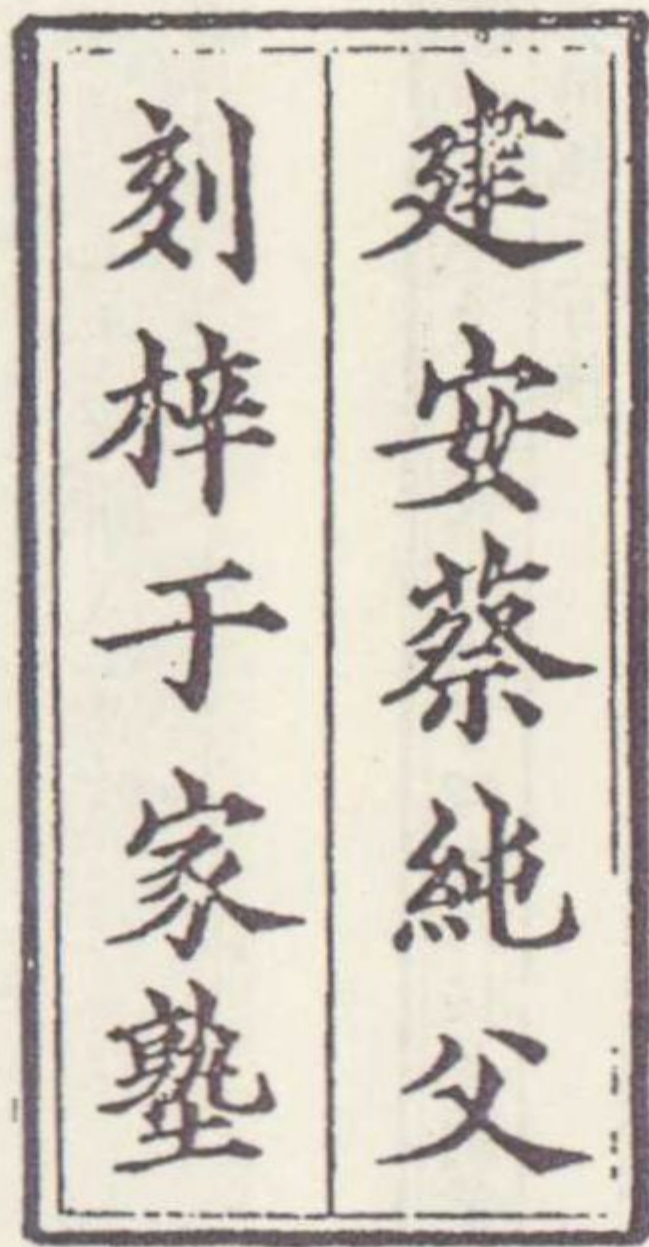 建安蔡純父
刻梓于家塾